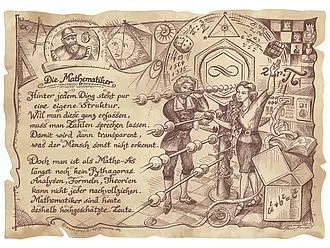 Die Mathematiker
Hinter jedem Ding steht pur
eine eigene Struktur.
Will man diese ganz erfassen,
muss man Zahlen sprechen lassen.
Damit wird dann transparent,
was der Mensch sonst nicht erkennt.
Doch man ist als Mathe-As
längst noch kein Pythagoras.
Analysen, Formeln, Theorien
kann nicht jeder nachvollziehen.
Mathematiker sind heute
deshalb hochgeschätzte Leute.